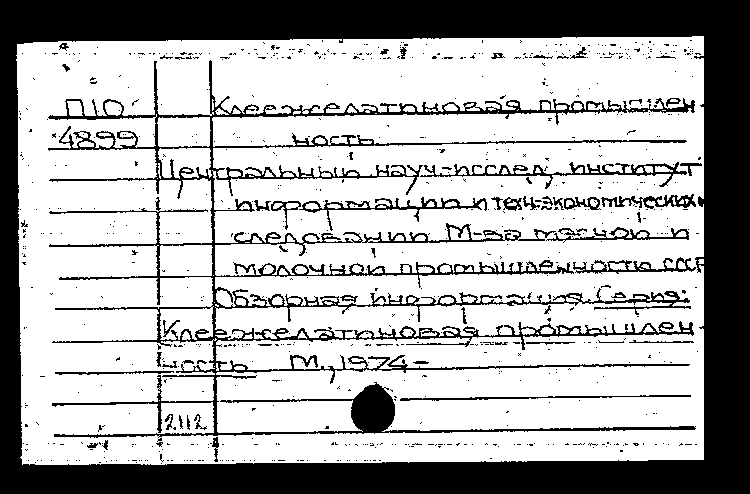 П10 Клеежелатиновая промышлен-
4899 ность.
Центральный науч.-исслед. институт
информации и техн.-экономических ис-
следований М-ва мясной и
молочной промышленности СССР
Обзорная информация. Серия:
Клеежелатиновая промышлен-
ность. М., 1974-
2112